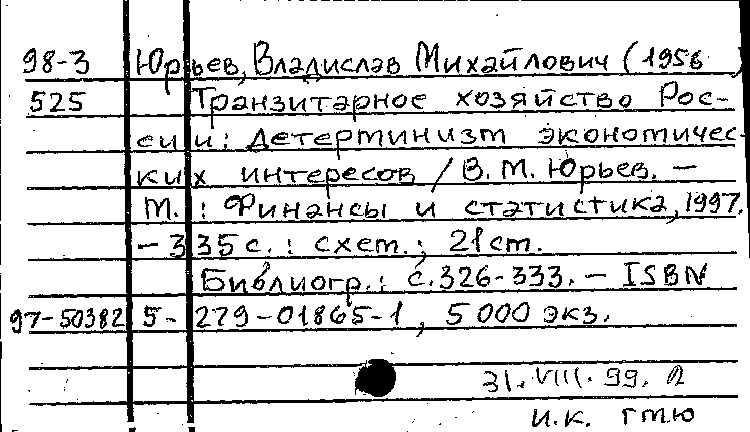 98-3 Юрьев, Владислав Михайлович (1956
525 Транзитарное хозяйство Рос-
сии: детерминизм экономичес-
ких интересов / В. М. Юрьев. —
М. : Финансы и статистика, 1997.
- 335 с. : схем. ; 21 cm.
Библиогр.: с. 326-333. — ISBN
97-50382 5-279-01865-1, 5 000 экз.
31. VIII. 99.
И.К. ГТЮ